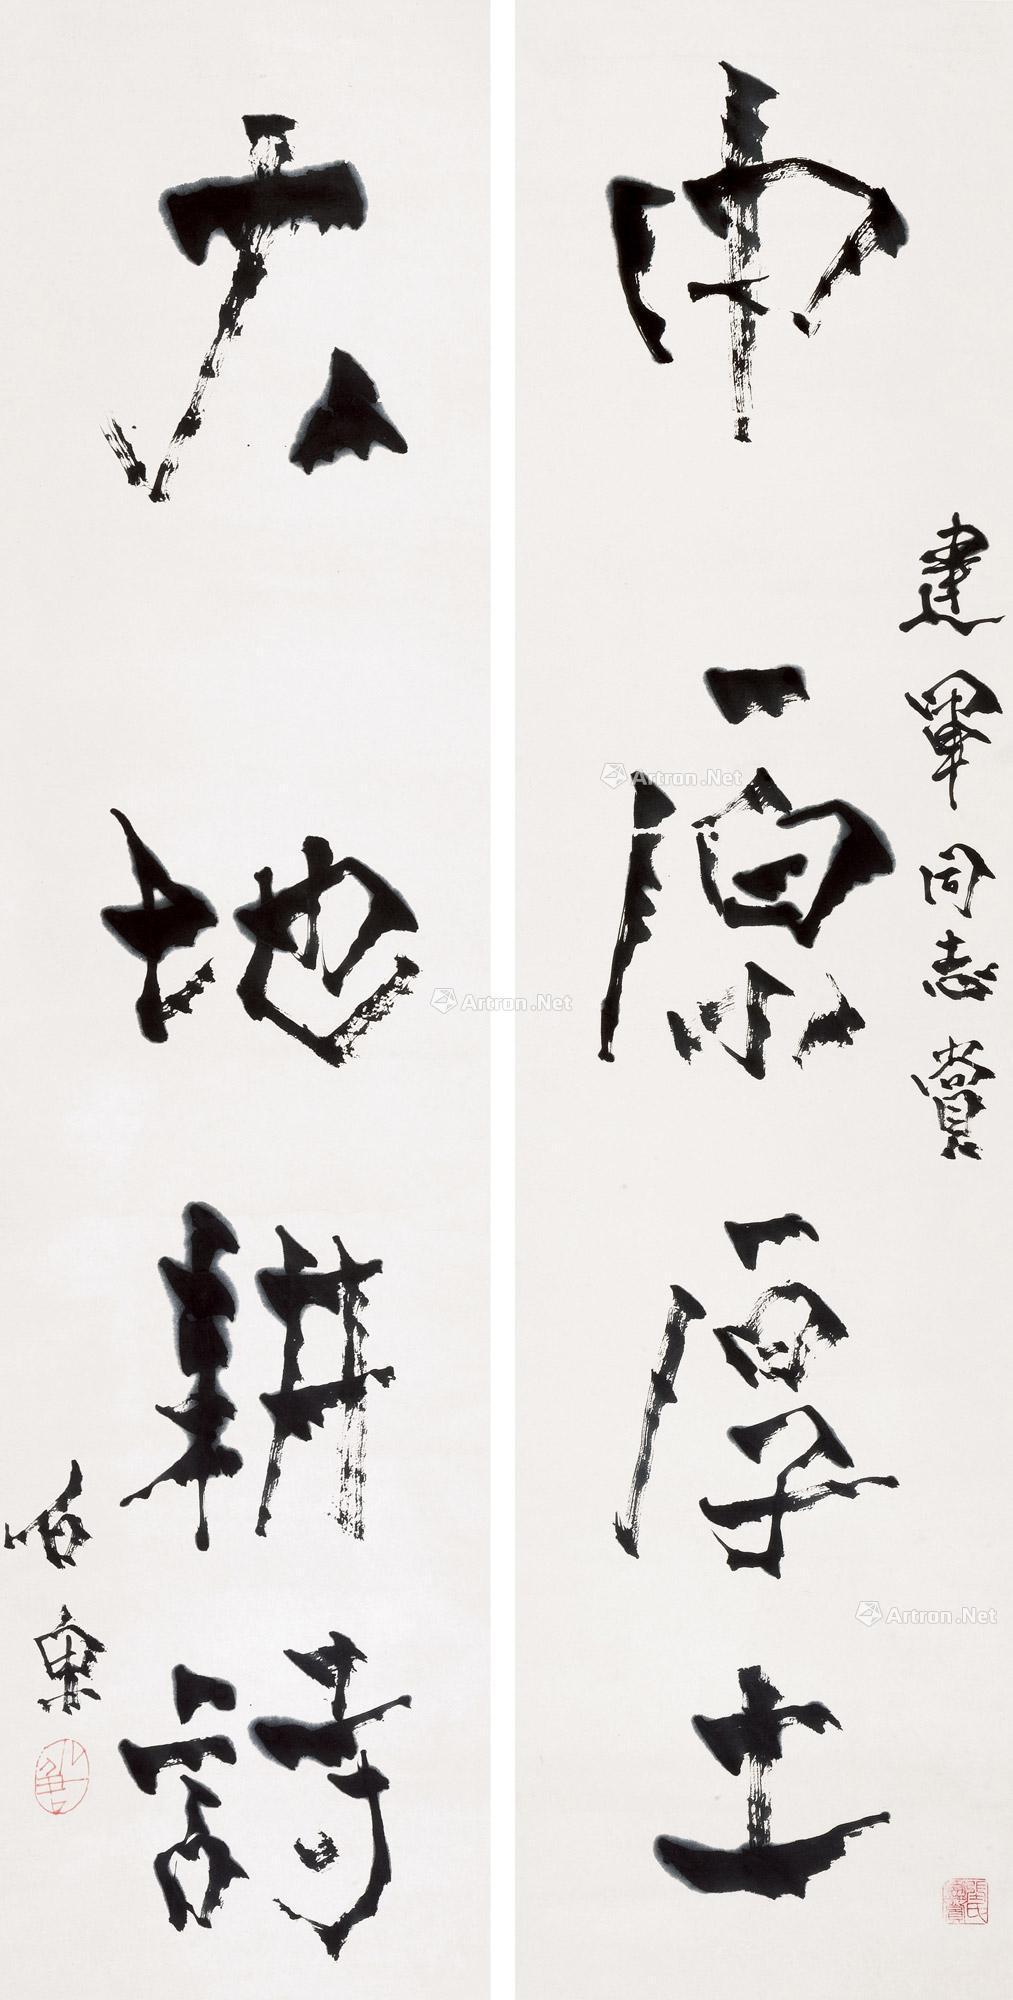 中原厚土
建军同志赏
大地耕诗
石东
Artron.Net
Artron.Net
Artron.Net